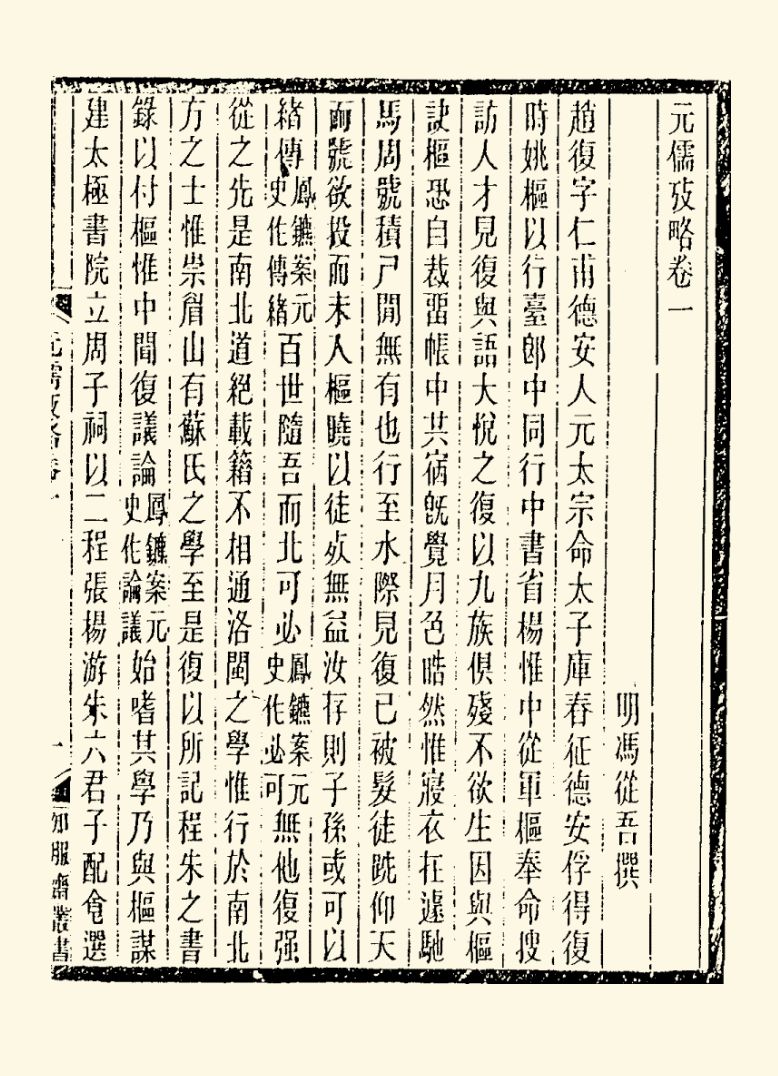 元儒攷略卷一
明馮從吾撰
趙復字仁甫德安人元太宗命太子庫春征德安俘得復
時姚樞以行臺郎中同行中書省楊惟中從軍樞奉命搜
訪人才見復與語大悅之復以九族俱殘不欲生因與樞
訣樞恐自裁畱帳中共宿旣覺月色晧然惟寢衣在遽馳
馬周號積尸閒無有也行至水際見復已被髮徒跣仰天
而號欲投而未入樞曉以徒死無益汝存則子孫或可以
緒傳鳳鑣案元史作傳緒百世隨吾而北可必鳳鑣案元史作必可無他復强
從之先是南北道絕載籍不相通洛閩之學惟行於南北
方之士惟崇眉山有蘇氏之學至是復以所記程朱之書
錄以付樞惟中閒復議論鳳鑣案元史作論議始嗜其學乃與樞謀
建太極書院立周子祠以二程張楊游朱六君子配食選
元儒攷略卷一
一
知服齋叢書